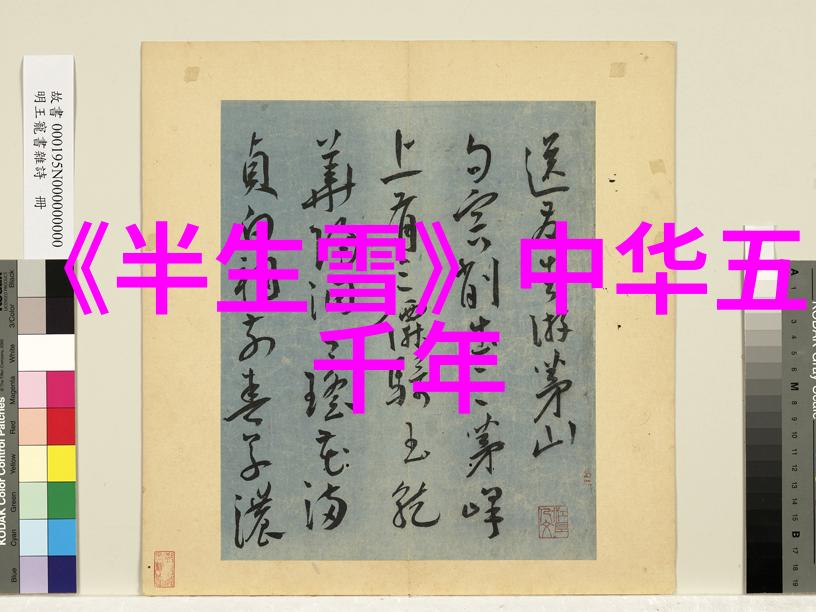 故書 000195N000000000
明王寵書雜詩 冊
《半生雪》中华五
千年
送君游茅山
句容削出三茅峰
上有三僊騎玉龍
華陽洞花滿
貞白祠前春草濃
KODAK Color Control Patches
Blue
Cyan
Green
Yellow
Red
Magenta
White
3/Color
Black
A
1
2
3
4
5
6
M
8
9
10
11
12
13
14
15
B
17
18
19